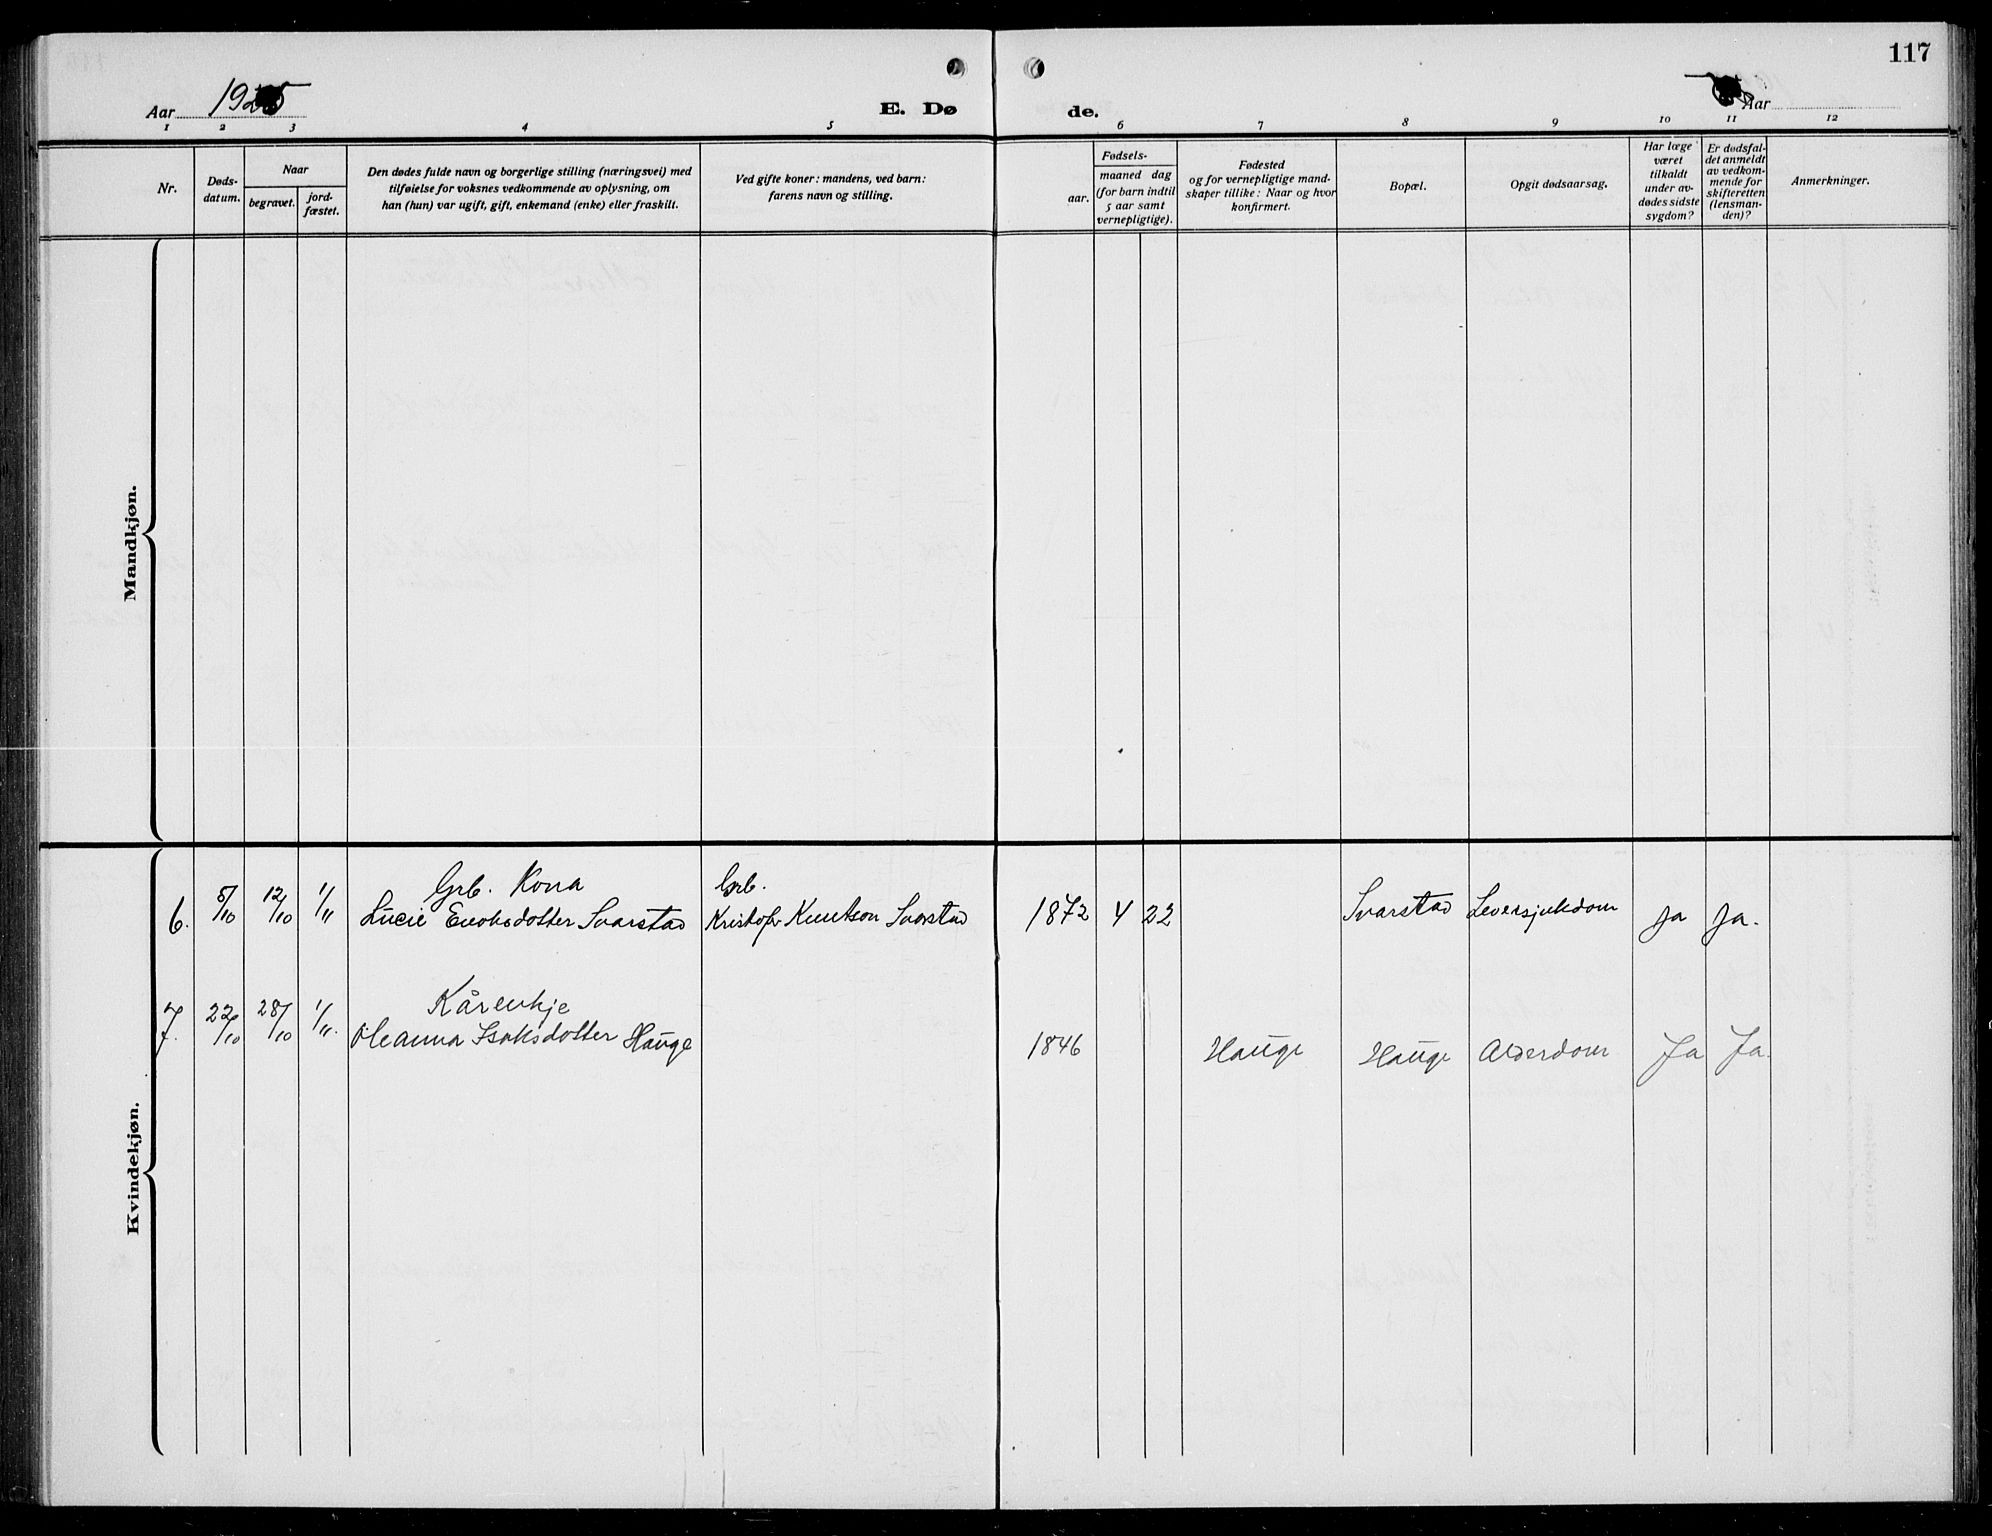 117
Aar 1925
E. Dø
de.
Aar
1 2 3 4 5 6 7 8 9 10 11 12
Nr.
Døds-
datum.
Naar
begravet.
jord-
fæstet.
Den dødes fulde navn og borgerlige stilling (næringsvei) med
tilføielse for voksnes vedkommende av oplysning, om
han (hun) var ugift, gift, enkemand (enke) eller fraskilt.
Ved gifte koner: mandens, ved barn:
farens navn og stilling.
Fødsels-
aar.
maaned dag
(for barn indtil
5 aar samt
vernepligtige).
Fødested
og for vernepligtige mand-
skaper tillike: Naar og hvor
konfirmert.
Bopæl.
Opgit dødsaarsag.
Har læge
været
tilkaldt
under av-
dødes sidste
sygdom?
Er dødsfal-
det anmeldt
av vedkom-
mende for
skifteretten
(lensman-
den)?
Anmerkninger.
Mandkjøn.
Grb. Kona Grb.
6. 5/10 12/10 1/11 Lucie Enoksdotter Svarstad Kristofer Knutson Svarstad 1872 4 22 Svarstad Leversjukdom Ja Ja.
Kårenkje
7. 22/10 28/10 1/11. Oleanna Isaksdotter Hauge 1846 Hauge Hauge Alderdom Ja Ja.
Kvindekjøn.